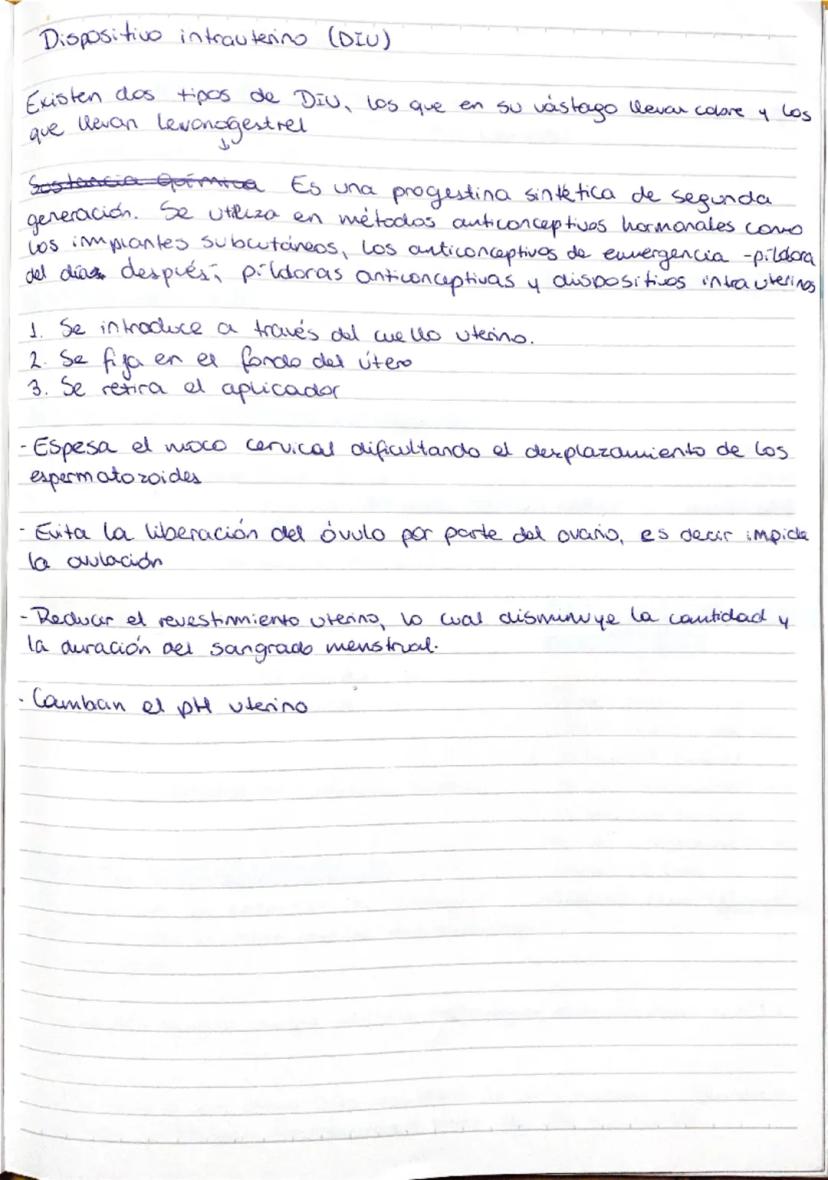 Dispositivo intrauterino (DIU)
Existen dos tipos de DIU, los que en su vástago llevan cobre y los
que llevan levonogestrel
↓
Sustancia química Es una progestina sintética de segunda
generación. Se utiliza en métodos anticonceptivos hormonales como
los implantes subcutáneos, los anticonceptivos de emergencia -píldora
del día después-, píldoras anticonceptivas y dispositivos intrauterinos
1. Se introduce a través del cuello uterino.
2. Se fija en el fondo del útero
3. Se retira el aplicador
- Espesa el moco cervical dificultando el desplazamiento de los
espermatozoides
- Evita la liberación del óvulo por parte del ovario, es decir impide
la ovulación
- Reducir el revestimiento uterino, lo cual disminuye la cantidad y
la duración del sangrado menstrual.
- Cambian el pH uterino